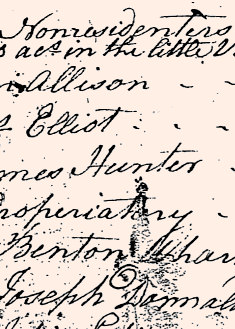 Nonresidenters
s act in the little
n Allison - -
Elliot - - -
mes Hunter -
roperiatory -
Benton Whar
Joseph